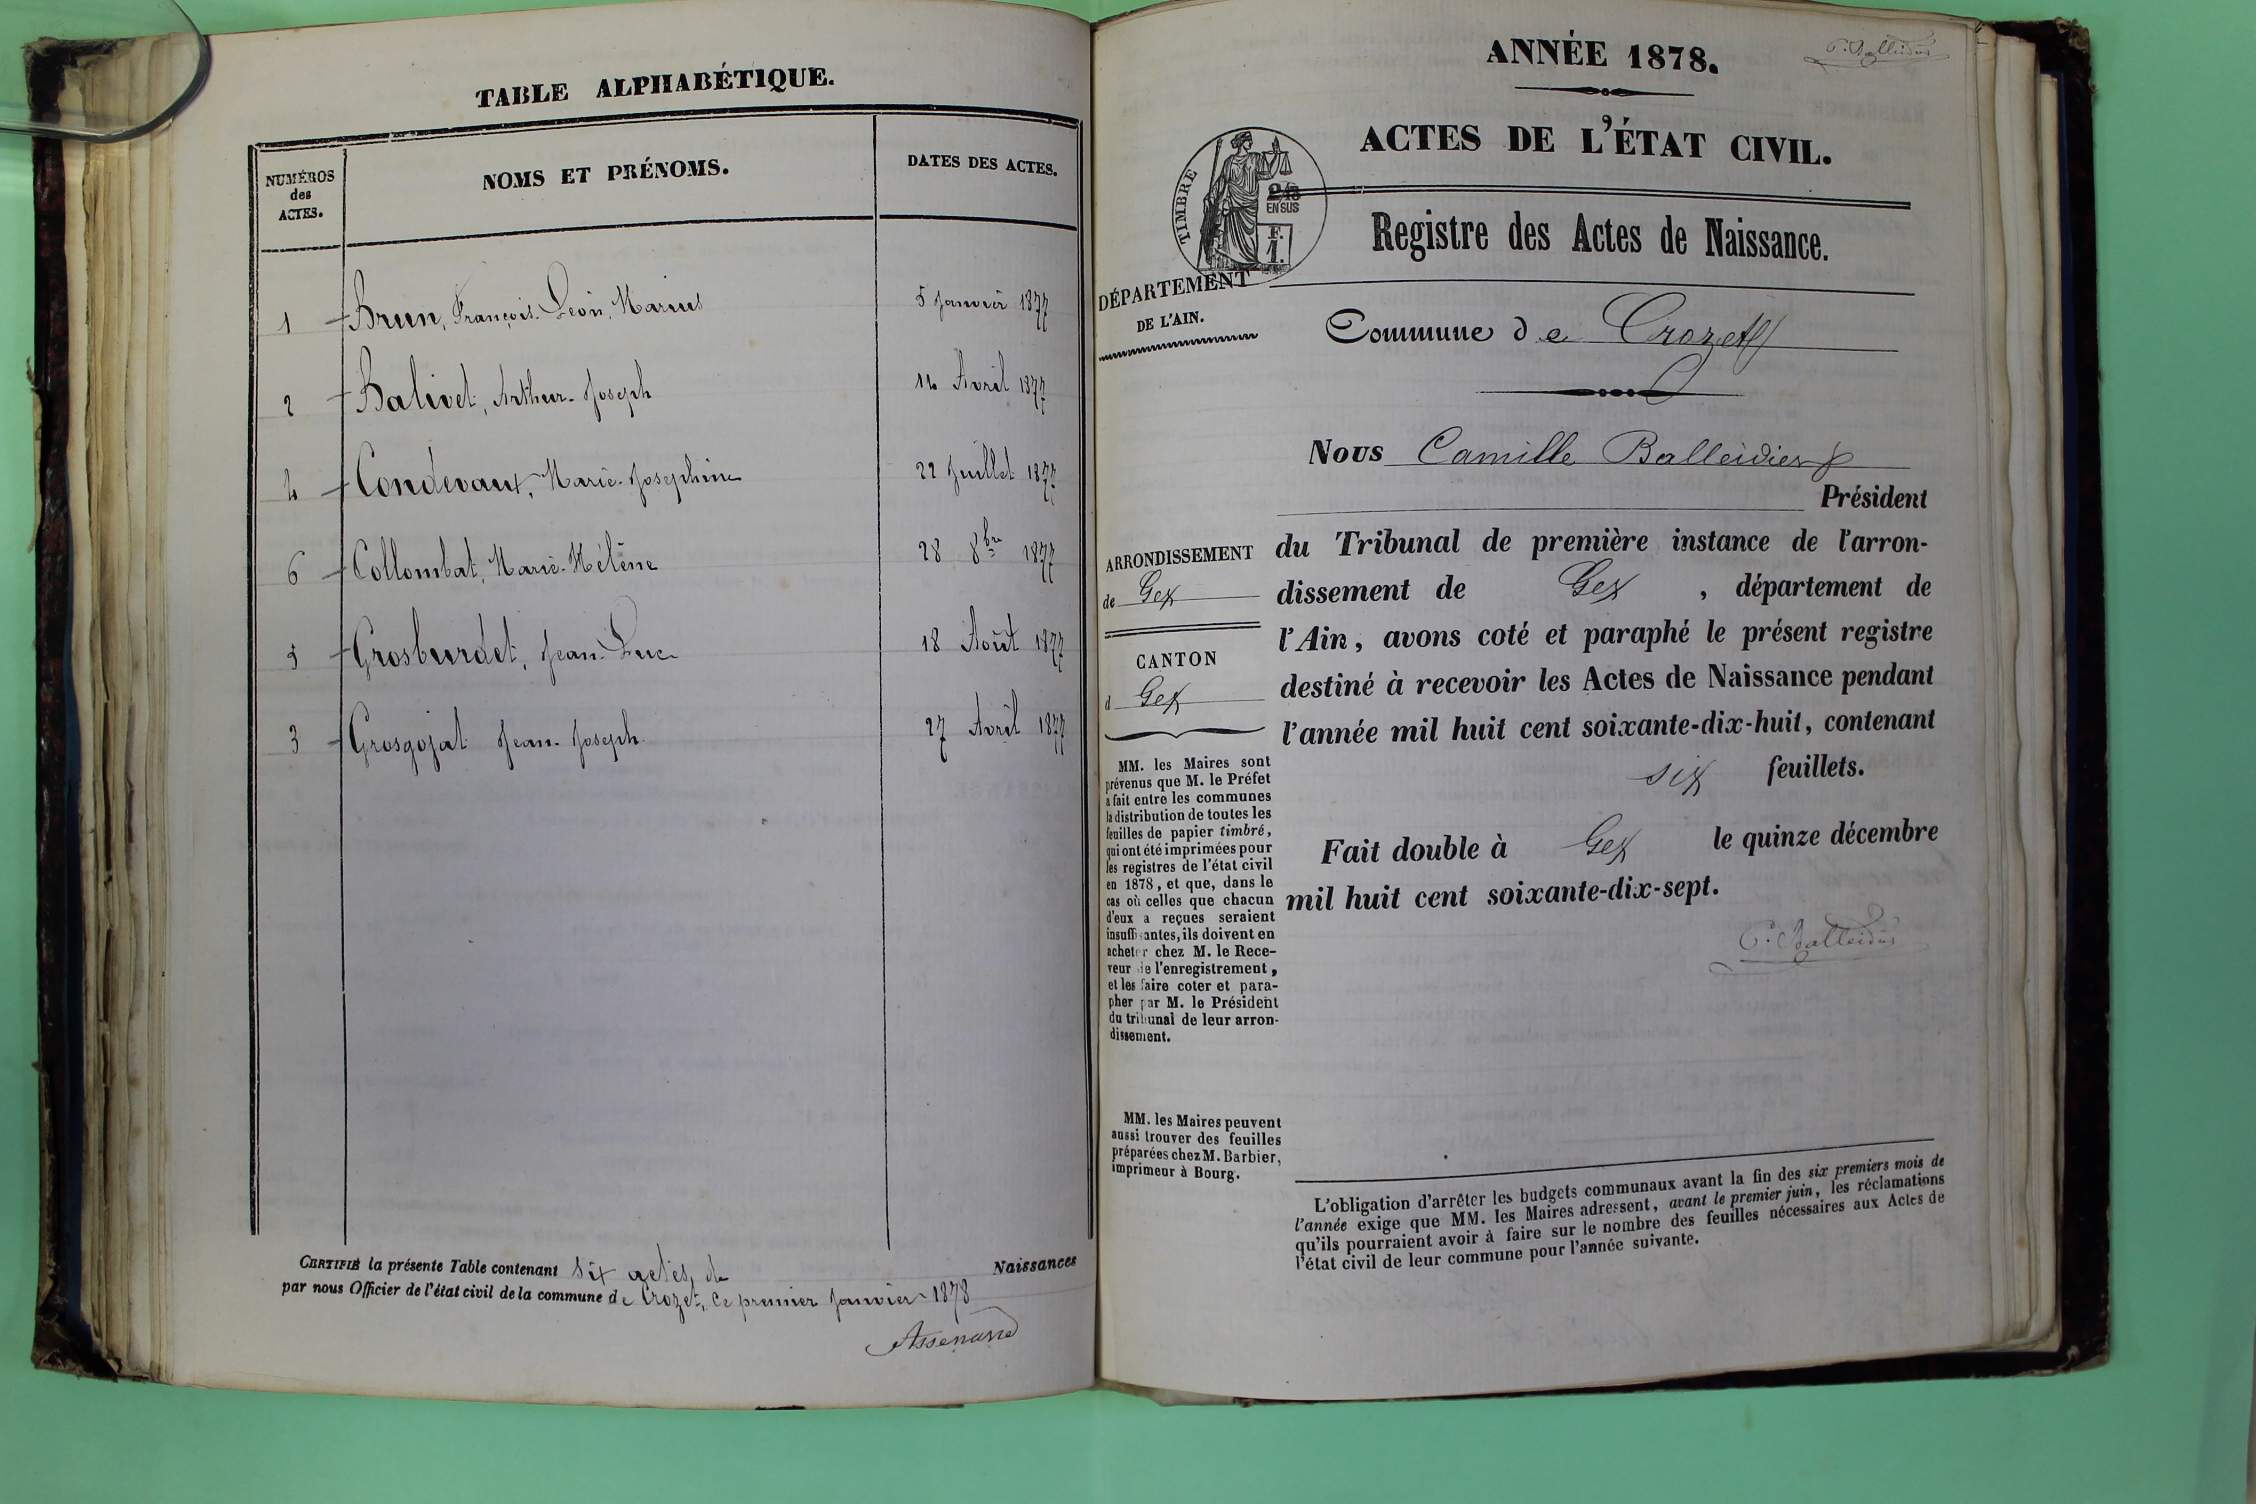 TABLE ALPHABÉTIQUE.
NUMÉROS
des
ACTES.
NOMS ET PRÉNOMS.
DATES DES ACTES.
1 Brun, François. Léon. Marius 5 Janvier 1877
2 Balivet, Arthur. Joseph 14 Avril 1877
4 Condevaux, Marie. Josephine 22 Juillet 1877
6 Collombat, Marie. Hélène 28 8bre 1877
5 Grosburdet, Jean. Luc 18 Août 1877
3 Grosgojat Jean. Joseph 27 Avril 1877
CERTIFIÉ la présente Table contenant six actes, de Naissances
par nous Officier de l'état civil de la commune de Crozet, ce premier Janvier 1878
ANNÉE 1878.
C. Balleidier
ACTES DE L'ÉTAT CIVIL.
TIMBRE
2/10
EN SUS
F.
1.
Registre des Actes de Naissance.
DÉPARTEMENT
DE L'AIN.
Commune de Crozet
Nous Camille Balleidier
Président
du Tribunal de première instance de l'arron-
dissement de Gex, département de
l'Ain, avons coté et paraphé le présent registre
destiné à recevoir les Actes de Naissance pendant
l'année mil huit cent soixante-dix-huit, contenant
six feuillets.
Fait double à Gex le quinze décembre
mil huit cent soixante-dix-sept.
C. Balleidier
ARRONDISSEMENT
de Gex
CANTON
d Gex
MM. les Maires sont
prévenus que M. le Préfet
a fait entre les communes
la distribution de toutes les
feuilles de papier timbré,
qui ont été imprimées pour
les registres de l'état civil
en 1878, et que, dans le
cas où celles que chacun
d'eux a reçues seraient
insuffisantes, ils doivent en
acheter chez M. le Rece-
veur de l'enregistrement,
et les faire coter et para-
pher par M. le Président
du tribunal de leur arron-
dissement.
MM. les Maires peuvent
aussi trouver des feuilles
préparées chez M. Barbier,
imprimeur à Bourg.
L'obligation d'arrêter les budgets communaux avant la fin des six premiers mois de
l'année exige que MM. les Maires adressent, avant le premier juin, les réclamations
qu'ils pourraient avoir à faire sur le nombre des feuilles nécessaires aux Actes de
l'état civil de leur commune pour l'année suivante.